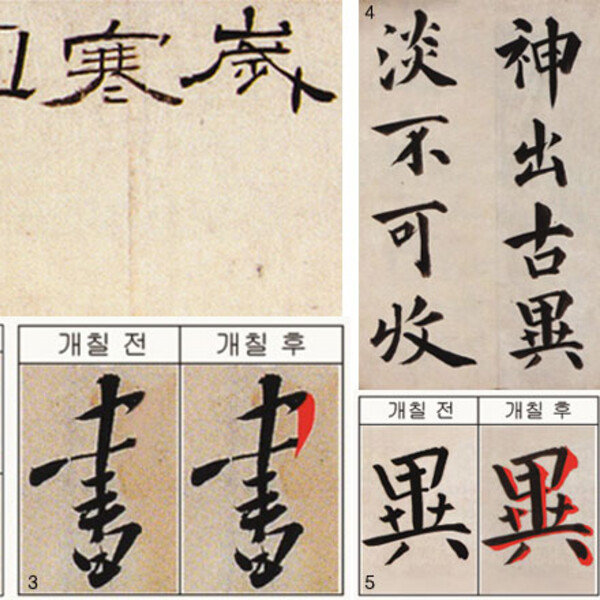 歲寒
4
神出古異
淡不可收
개칠 전 개칠 후
書 書
3
개칠 전 개칠 후
異 異
5